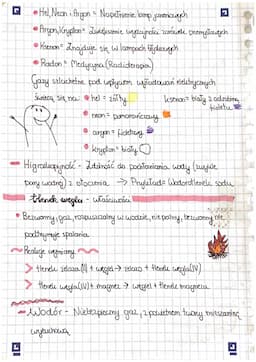 • Hel, Neon i Argon = Napełnienie lamp jarzeniowych
• Argon, Krypton = Zwiększenie wydajności żarówek przemysłowych
• Ksenon = Znajduje się w lampach błyskowych
• Radon = Medycyna (Radioterapia)
Gazy szlachetne pod wpływem wyładowań elektrycznych
świecą się na:
• hel = żółty
ksenon = biały z odcieniem fioletu
• neon = pomarańczowy
• argon = fioletowy
• krypton = biały
Higroskopijność - Zdolność do pochłaniania wody (wyjście
pary wodnej) z otoczenia → Przykład = Wodorotlenek sodu
tlenek węgla - właściwości
• Bezwonny, gaz, rozpuszczalny w wodzie, nie palny, bezwonny, nie
podtrzymuje spalania
Reakcje wymiany
> tlenek żelaza (II) + węgiel → żelazo + tlenek węgla (IV)
> tlenek węgla (IV) + magnez → węgiel + tlenek magnezu
- Wodór - Niebezpieczny gaz, z powietrzem tworzy mieszaninę
wybuchową